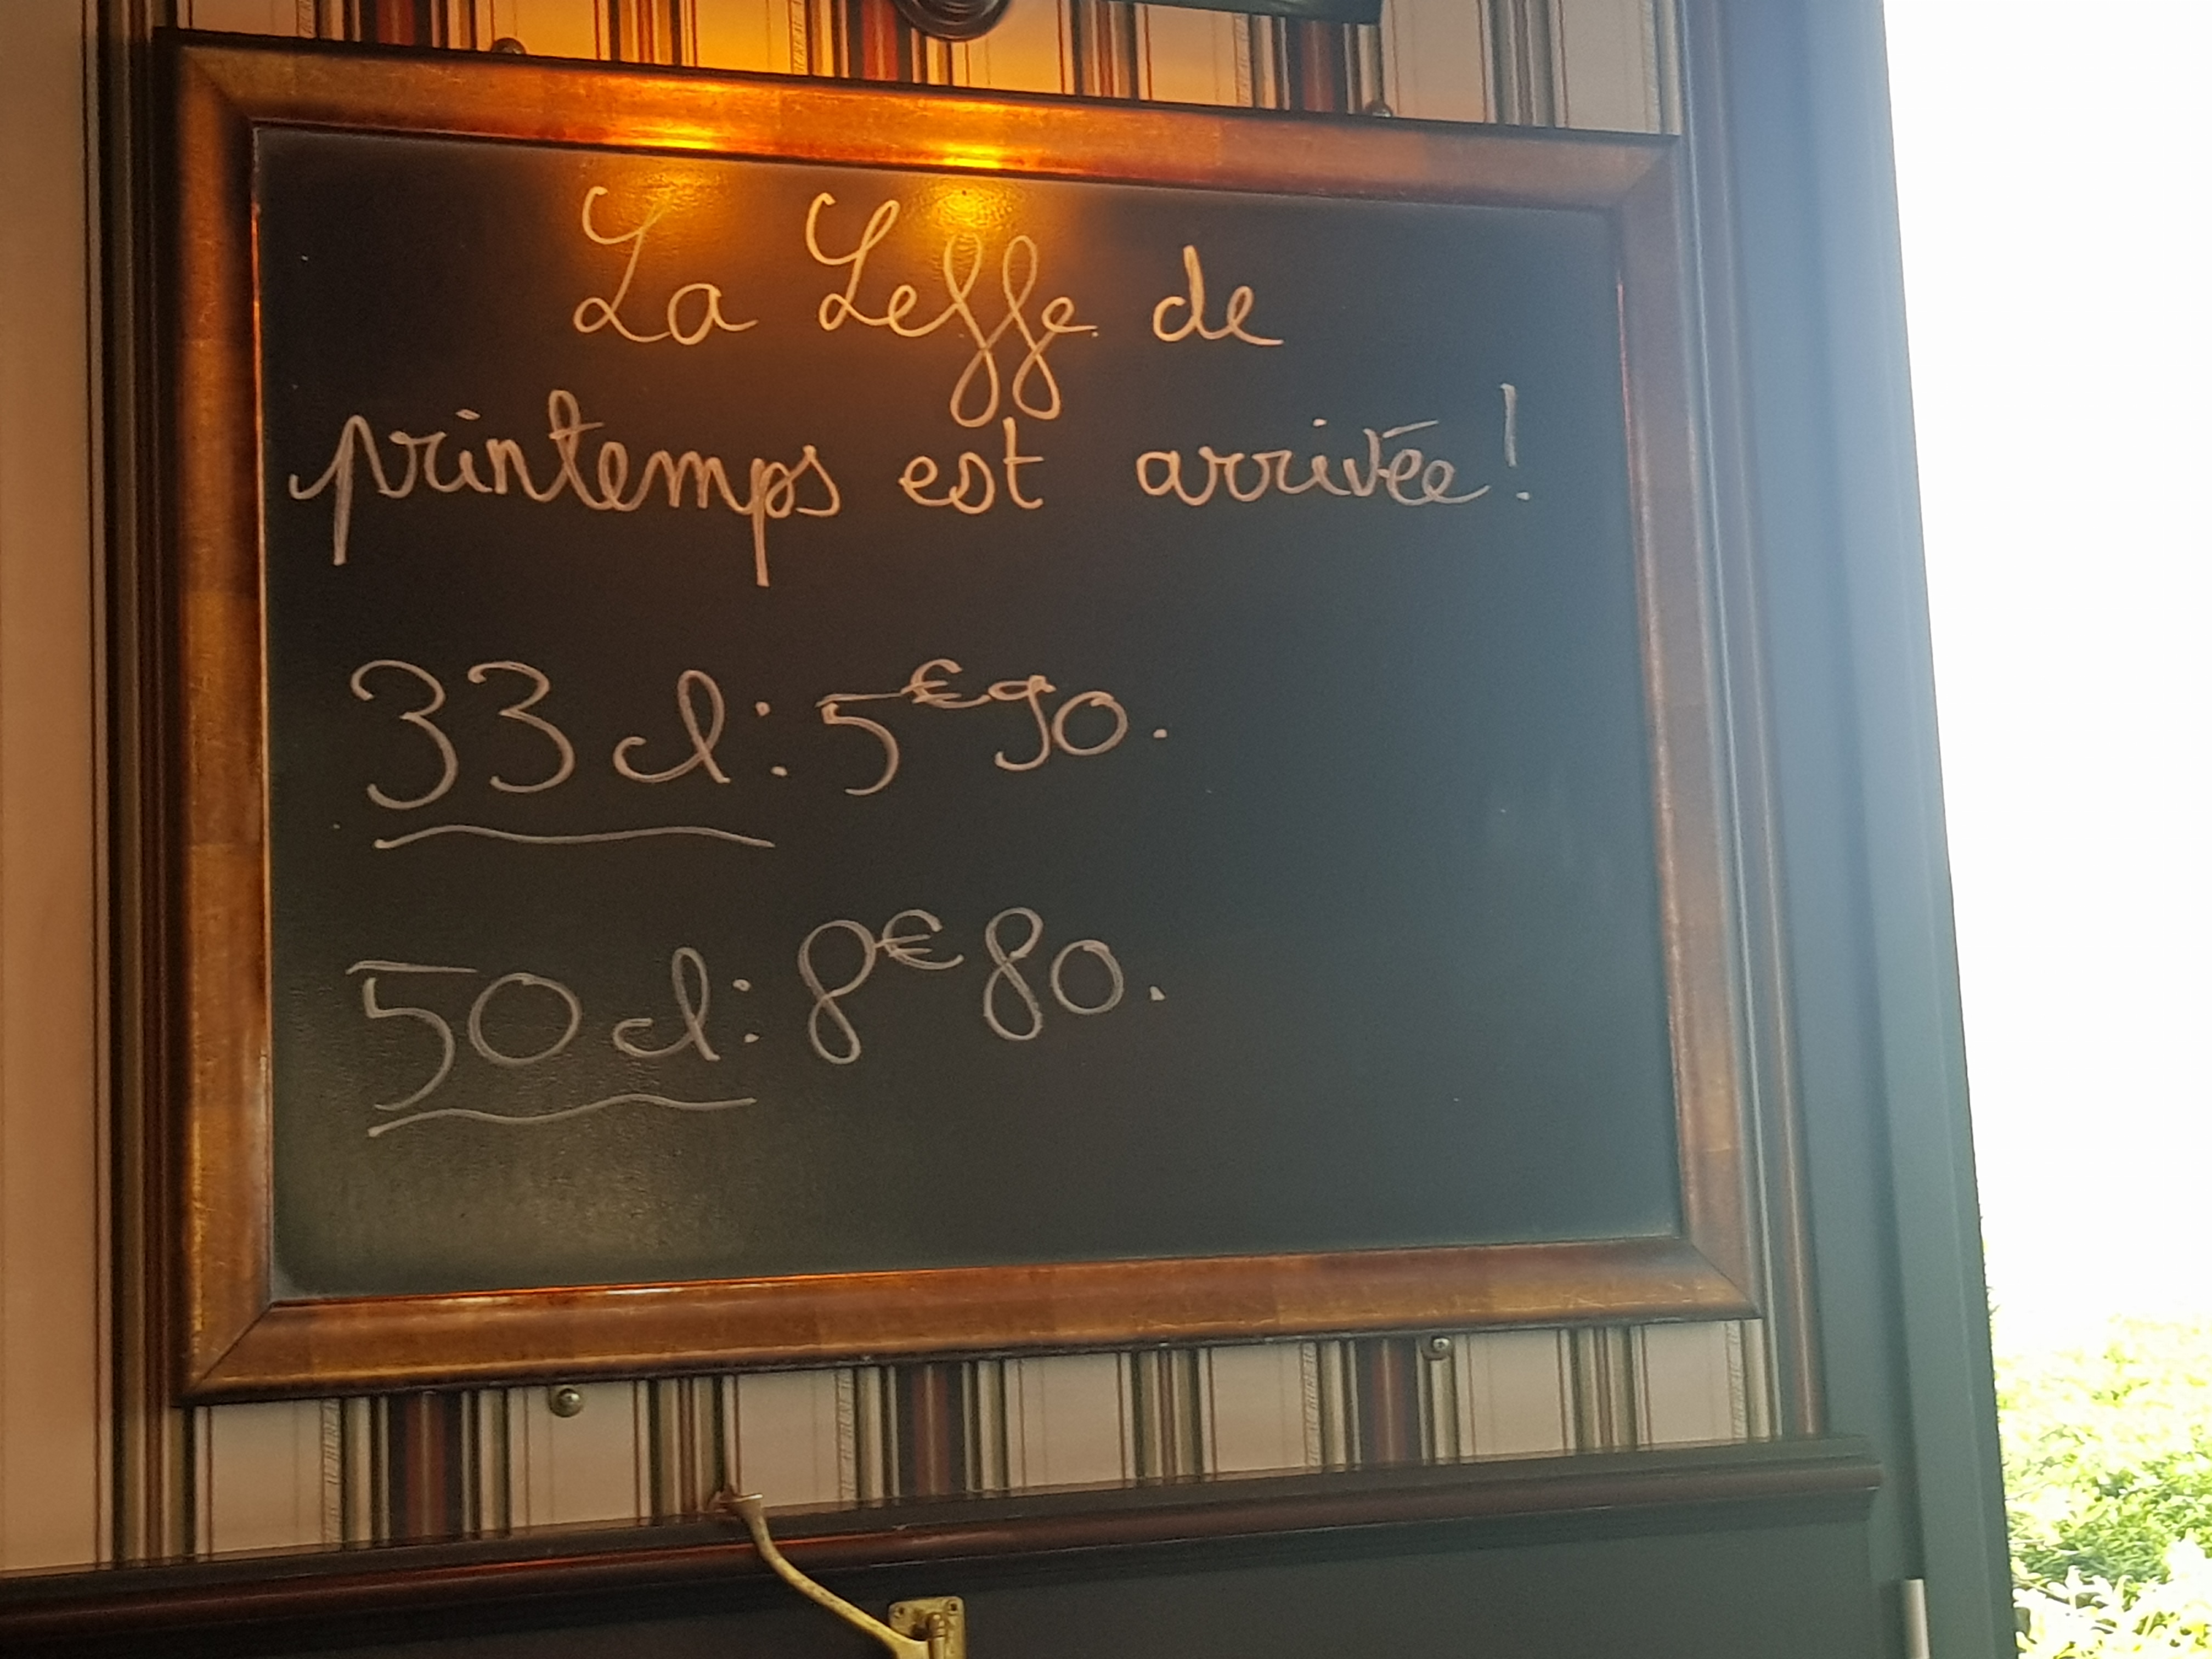 La Leffe de
printemps est arrivée !
33 cl : 5€90.
50 cl : 8€80.